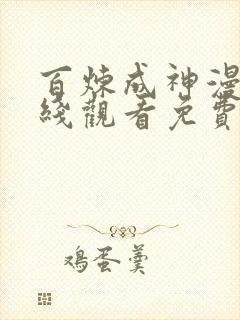 百炼成神漫
綫觀看免費
鸡蛋羹